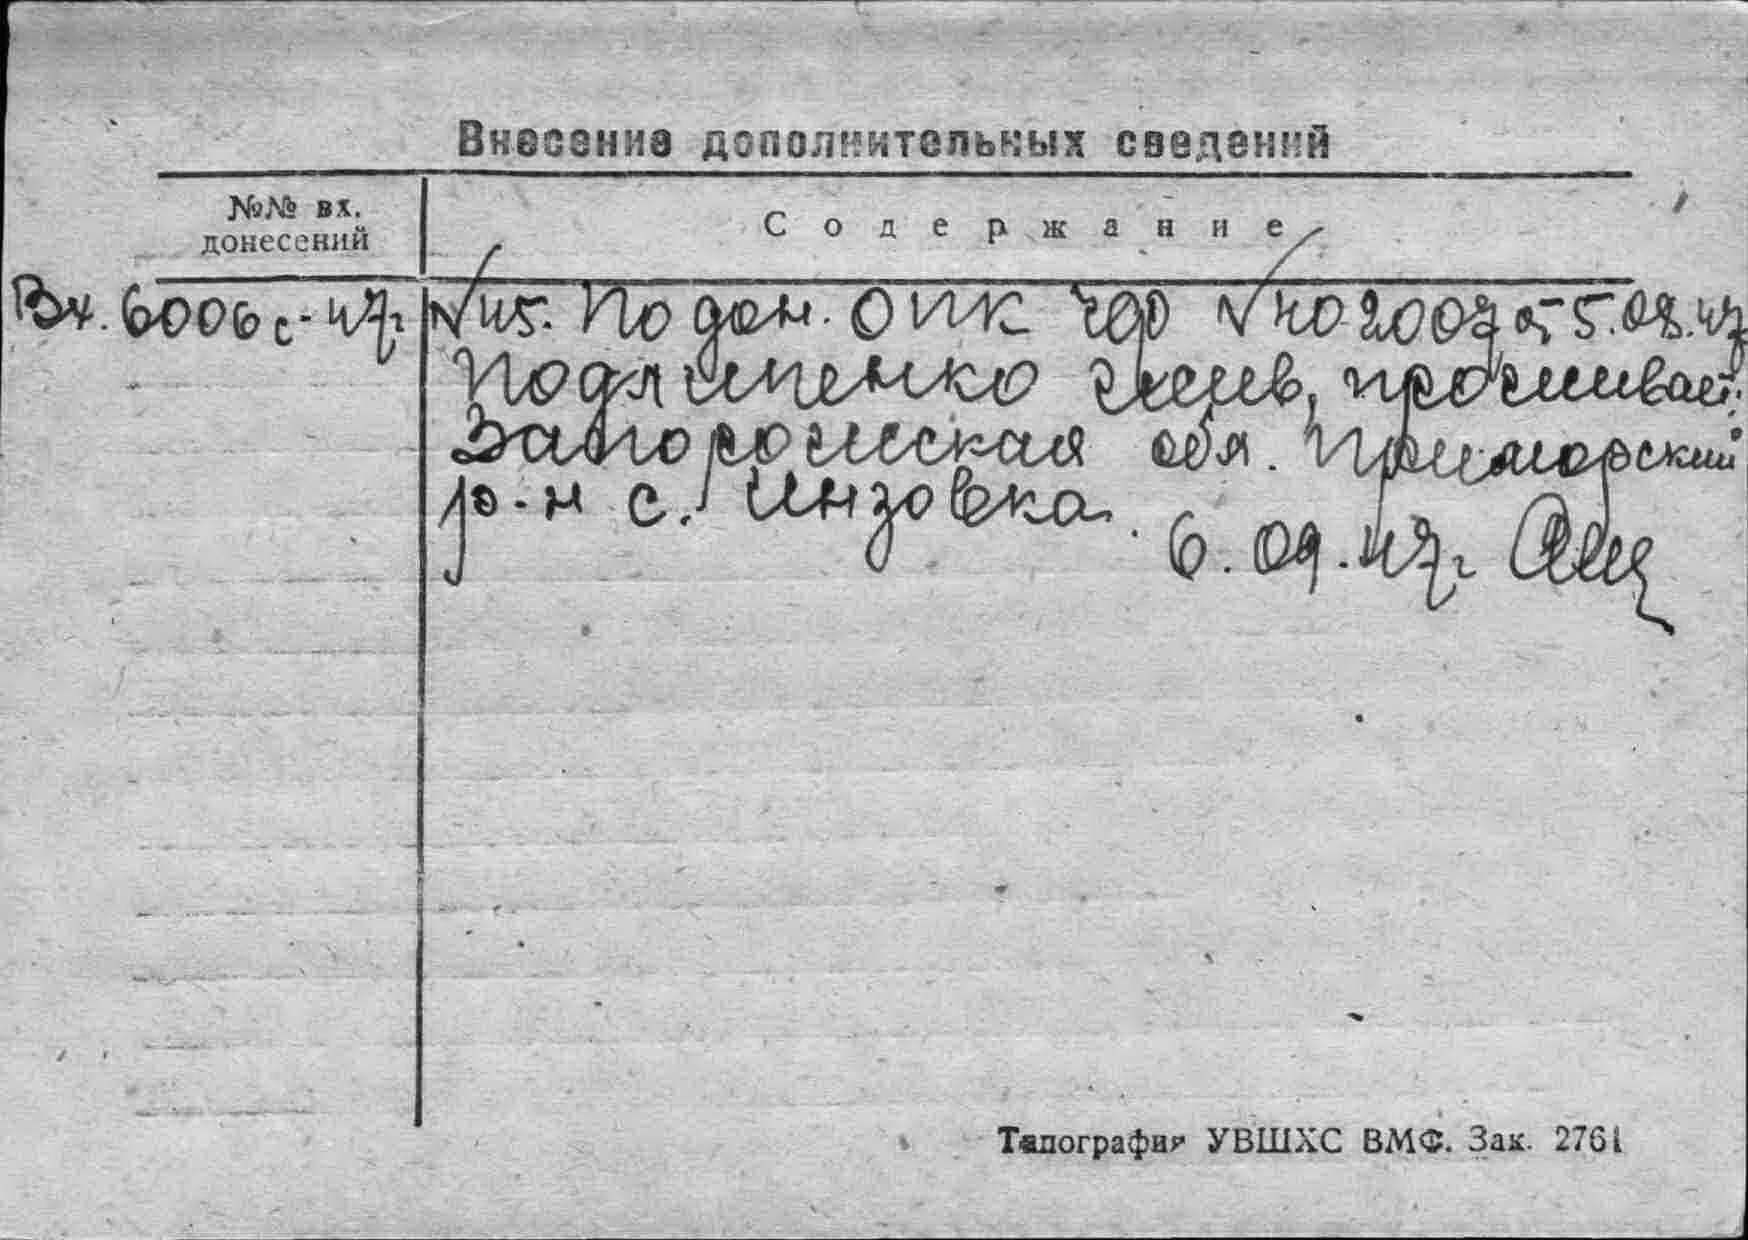 Внесение дополнительных сведений
№№ вх.
донесений
Содержание
Вх. 6006с-47г
№45. По дон. ОПК ЧФ №40-2007 от 5.08.47
Подлипенко жив, проживает:
Запорожская обл. Приморский
р-н с. Инзовка.
6.09.47г
Типография УВШХС ВМФ. Зак. 2761